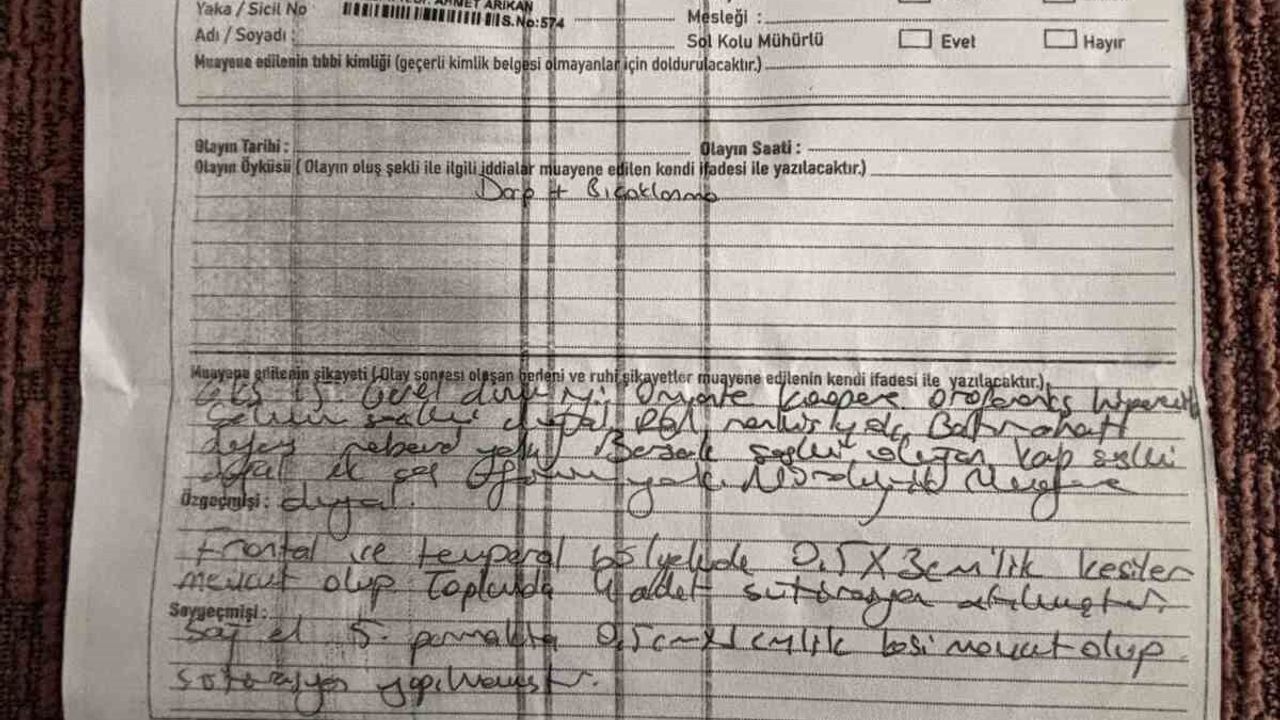 AHMET ARIKAN
Yaka / Sicil No S.No:574 Mesleği :
Adı / Soyadı : Sol Kolu Mühürlü Evet Hayır
Muayene edilenin tıbbi kimliği (geçerli kimlik belgesi olmayanlar için doldurulacaktır.)
Olayın Tarihi : Olayın Saati :
Olayın Öyküsü ( Olayın oluş şekli ile ilgili iddialar muayene edilen kendi ifadesi ile yazılacaktır.)
Darp + Bıçaklanma
Muayene edilenin şikayeti ( Olay sonrası oluşan bedeni ve ruhi şikayetler muayene edilenin kendi ifadesi ile yazılacaktır.)
GKS 15. Genel durum iyi. Koopere
Batın rahat
defans rebound yok. Barsak sesleri kalp sesleri
doğal ek ses yok. Nörolojik Muayene
Özgeçmişi : doğal.
Frontal ve temporal bölgelerde 0,5X3cm'lik kesiler
mevcut olup Toplamda 4 adet sütürasyon atılmıştır.
Soygeçmişi :
Sağ el 5. parmakta 0,5cmX1cm'lik kesi mevcut olup
sütürasyon yapılmıştır.